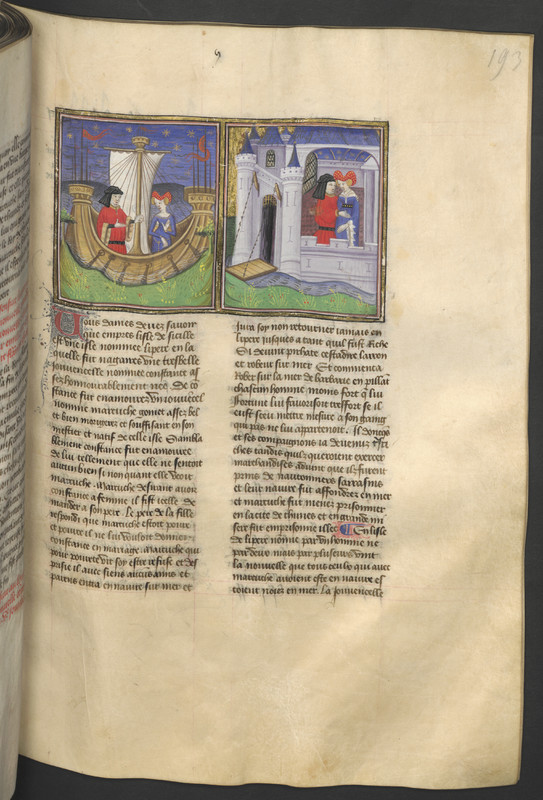 193
Vous dames devez savoir
que empres lisle de sicille
est une isle nommee lipere en la
quelle fut nagaires une tresbelle
jouvencelle nommee constance as
sez honnourablement nee De co
stance fut enamoure un jouvencel
nomme martuche gomet assez bel
et bien moriginez et souffisant en son
mestier et natif de celle isle Sambla
blement constance fut enamouree
de lui tellement que elle ne sentoit
aucun bien si non quant elle veoit
martuche. Martuche desirant avoir
constance a femme il fist icelle de
mander a son pere. Le pere de la fille
respondi que martuche estoit povre
et pource il ne lui vouloit donner
constance en mariage. Martuche qui
pour povrete vit soy estre refusé et des
prisie il avec siens aucuns amis et
parens entra en navire sur mer et
jura soy non retourner jamais en
lipere jusques a tant quil fust riche
Si devint pirate cestadire larron
et robeur sur mer Et commenca
rober sur la mer de barbarie en pillant
chascun homme moins fort q lui
fortune lui favorisoit tresfort se il
eust sceu mettre mesure a son gaing
qui pas ne lui appartenoit. Il
et ses compaignons ia devenuz
ches tandis quilz queroient exercer
marchandises advint que ilz furent
prins de nautonniers sarrasins
et leur navire fut affondree en mer
et martuche fut menez prisonnier
en la cite de thunes et en grande mi
sere fut emprisonne illec En lisle
de lipere non pas par un homme ne
par deux mais par plusieurs vint
la nouvelle que tous ceulx qui avec
martuche avoient este en navire es
toient noiez en mer. La jouvencelle